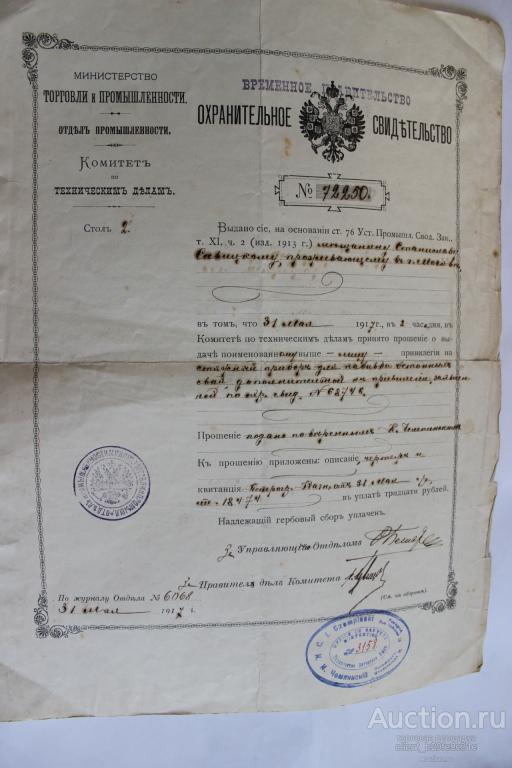 МИНИСТЕРСТВО
ТОРГОВЛИ и ПРОМЫШЛЕННОСТИ.
ОТДѢЛЪ ПРОМЫШЛЕННОСТИ.
КОМИТЕТЪ
по
ТЕХНИЧЕСКИМЪ ДѢЛАМЪ.
Столъ 2.
ВРЕМЕННОЕ ПРАВИТЕЛЬСТВО
ОХРАНИТЕЛЬНОЕ СВИДѢТЕЛЬСТВО
№ 72250.
Выдано сіе, на основаніи ст. 76 Уст. Промышл. Свод. Зак.,
т. XI, ч. 2 (изд. 1913 г.) мѣщанину Станиславу
Савицкому, проживающему въ г. Москвѣ,
въ томъ, что 31 Мая 1917 г., въ 2 час. дня, въ
Комитетѣ по техническимъ дѣламъ принято прошеніе о вы-
дачѣ поименованному выше — лицу — привилегіи на
приборъ для набивки бетонныхъ
свай, дополнительной къ привилегіи, заявлен-
ной по охр. свид. № 68748.
Прошеніе подано повѣреннымъ К. Чемпинскимъ
Къ прошенію приложены: описаніе, чертежъ и
квитанція Петрогр. Казнач. 31 Мая с/г.
за № 18474 въ уплатѣ тридцати рублей.
Надлежащій гербовый сборъ уплаченъ.
За Управляющаго Отдѣломъ
За Правителя дѣлъ Комитета
По журналу Отдѣла № 6068
31 Мая 1917 г.
(См. на оборотѣ).
K. C. I. Czempinski
№ 3151
К. И. Чемпинскій
Auction.ru
торговая площадка